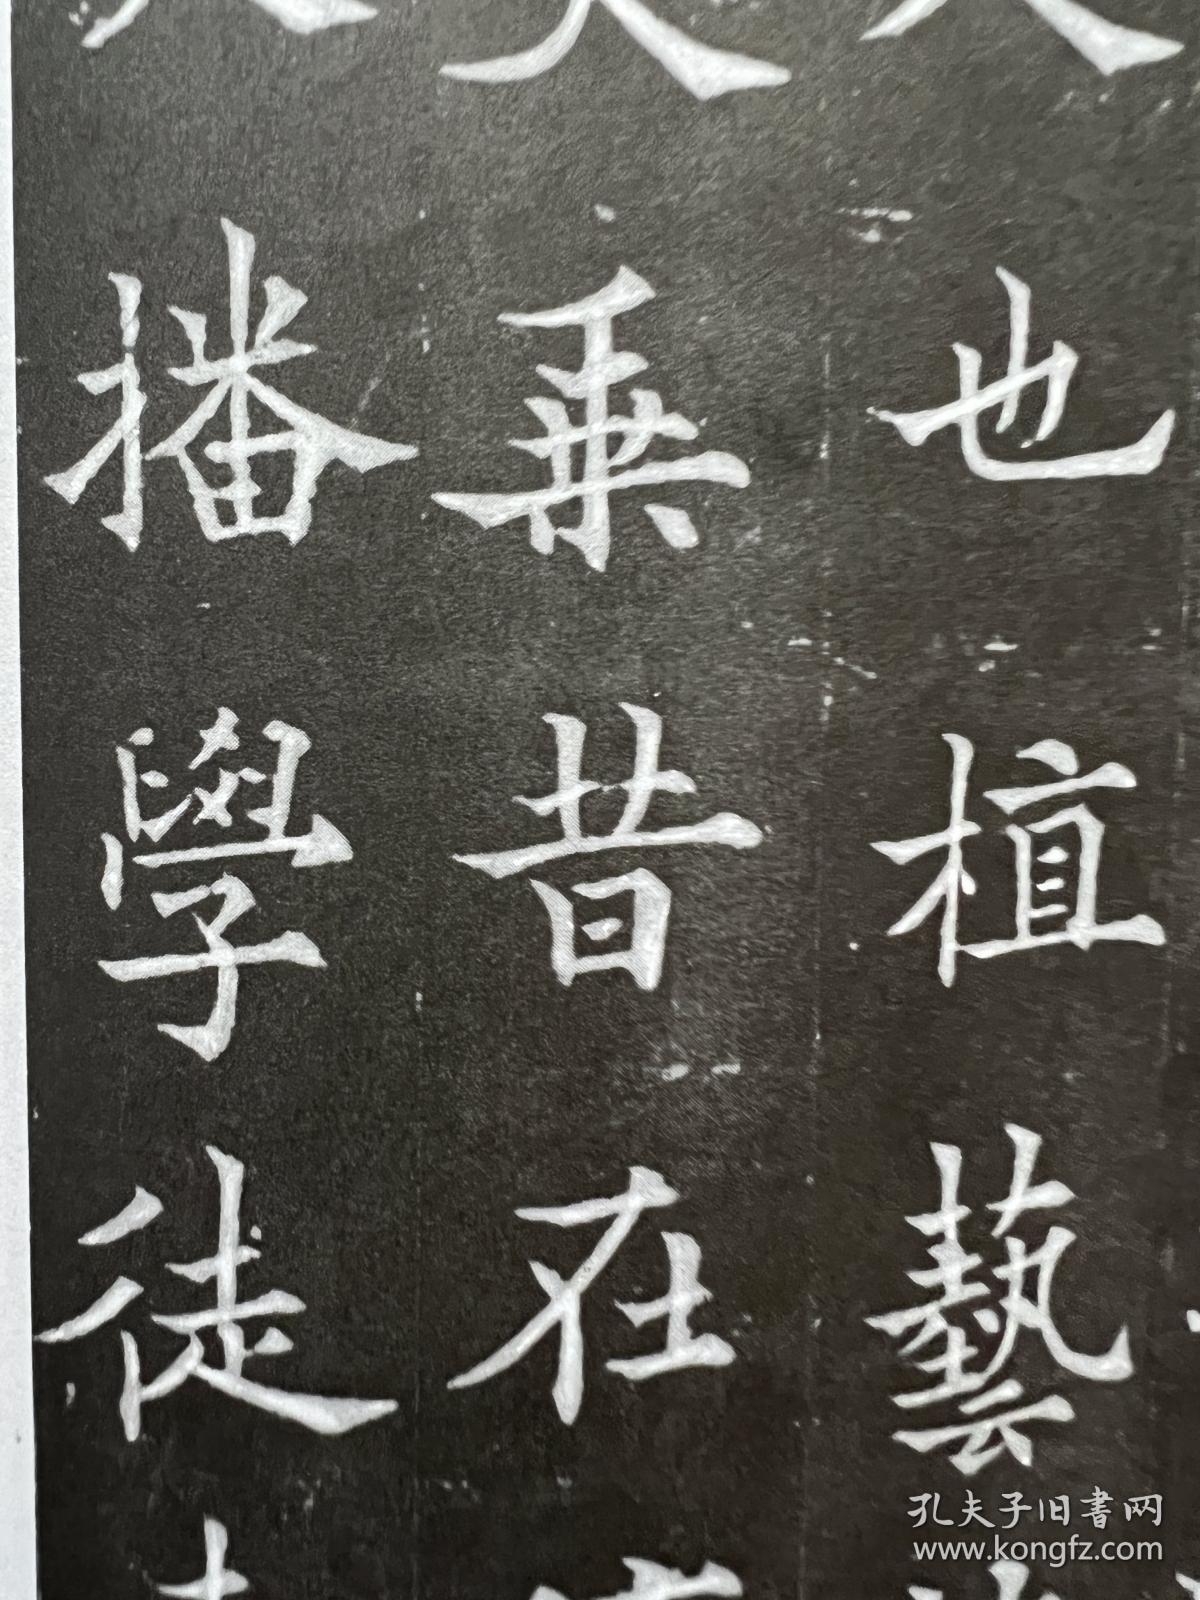 也植藝
乗昔在
播學徒
孔夫子旧書网
www.kongfz.com